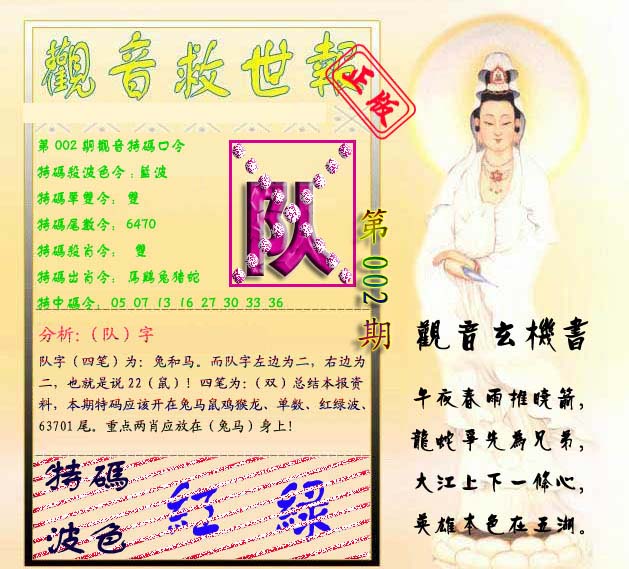 觀音救世報
正版
第002期觀音特碼口令
特碼殺波色令：藍波
特碼單雙令： 雙
特碼尾數令： 6470
特碼殺肖令： 雙
特碼出肖令： 馬鷄兔猪蛇
特中碼令： 05 07 13 16 27 30 33 36
队
第002期
分析:（队）字
队字（四笔）为：兔和马。而队字左边为二，右边为
二，也就是说22（鼠）！四笔为：（双）总结本报资
料，本期特码应该开在兔马鼠鸡猴龙、单数、红绿波、
63701尾。重点两肖应放在（兔马）身上！
特碼
波色
紅 綠
觀音玄機書
午夜春雨推曉箭，
龍蛇爭先為兄弟，
大江上下一條心，
英雄本色在五湖。